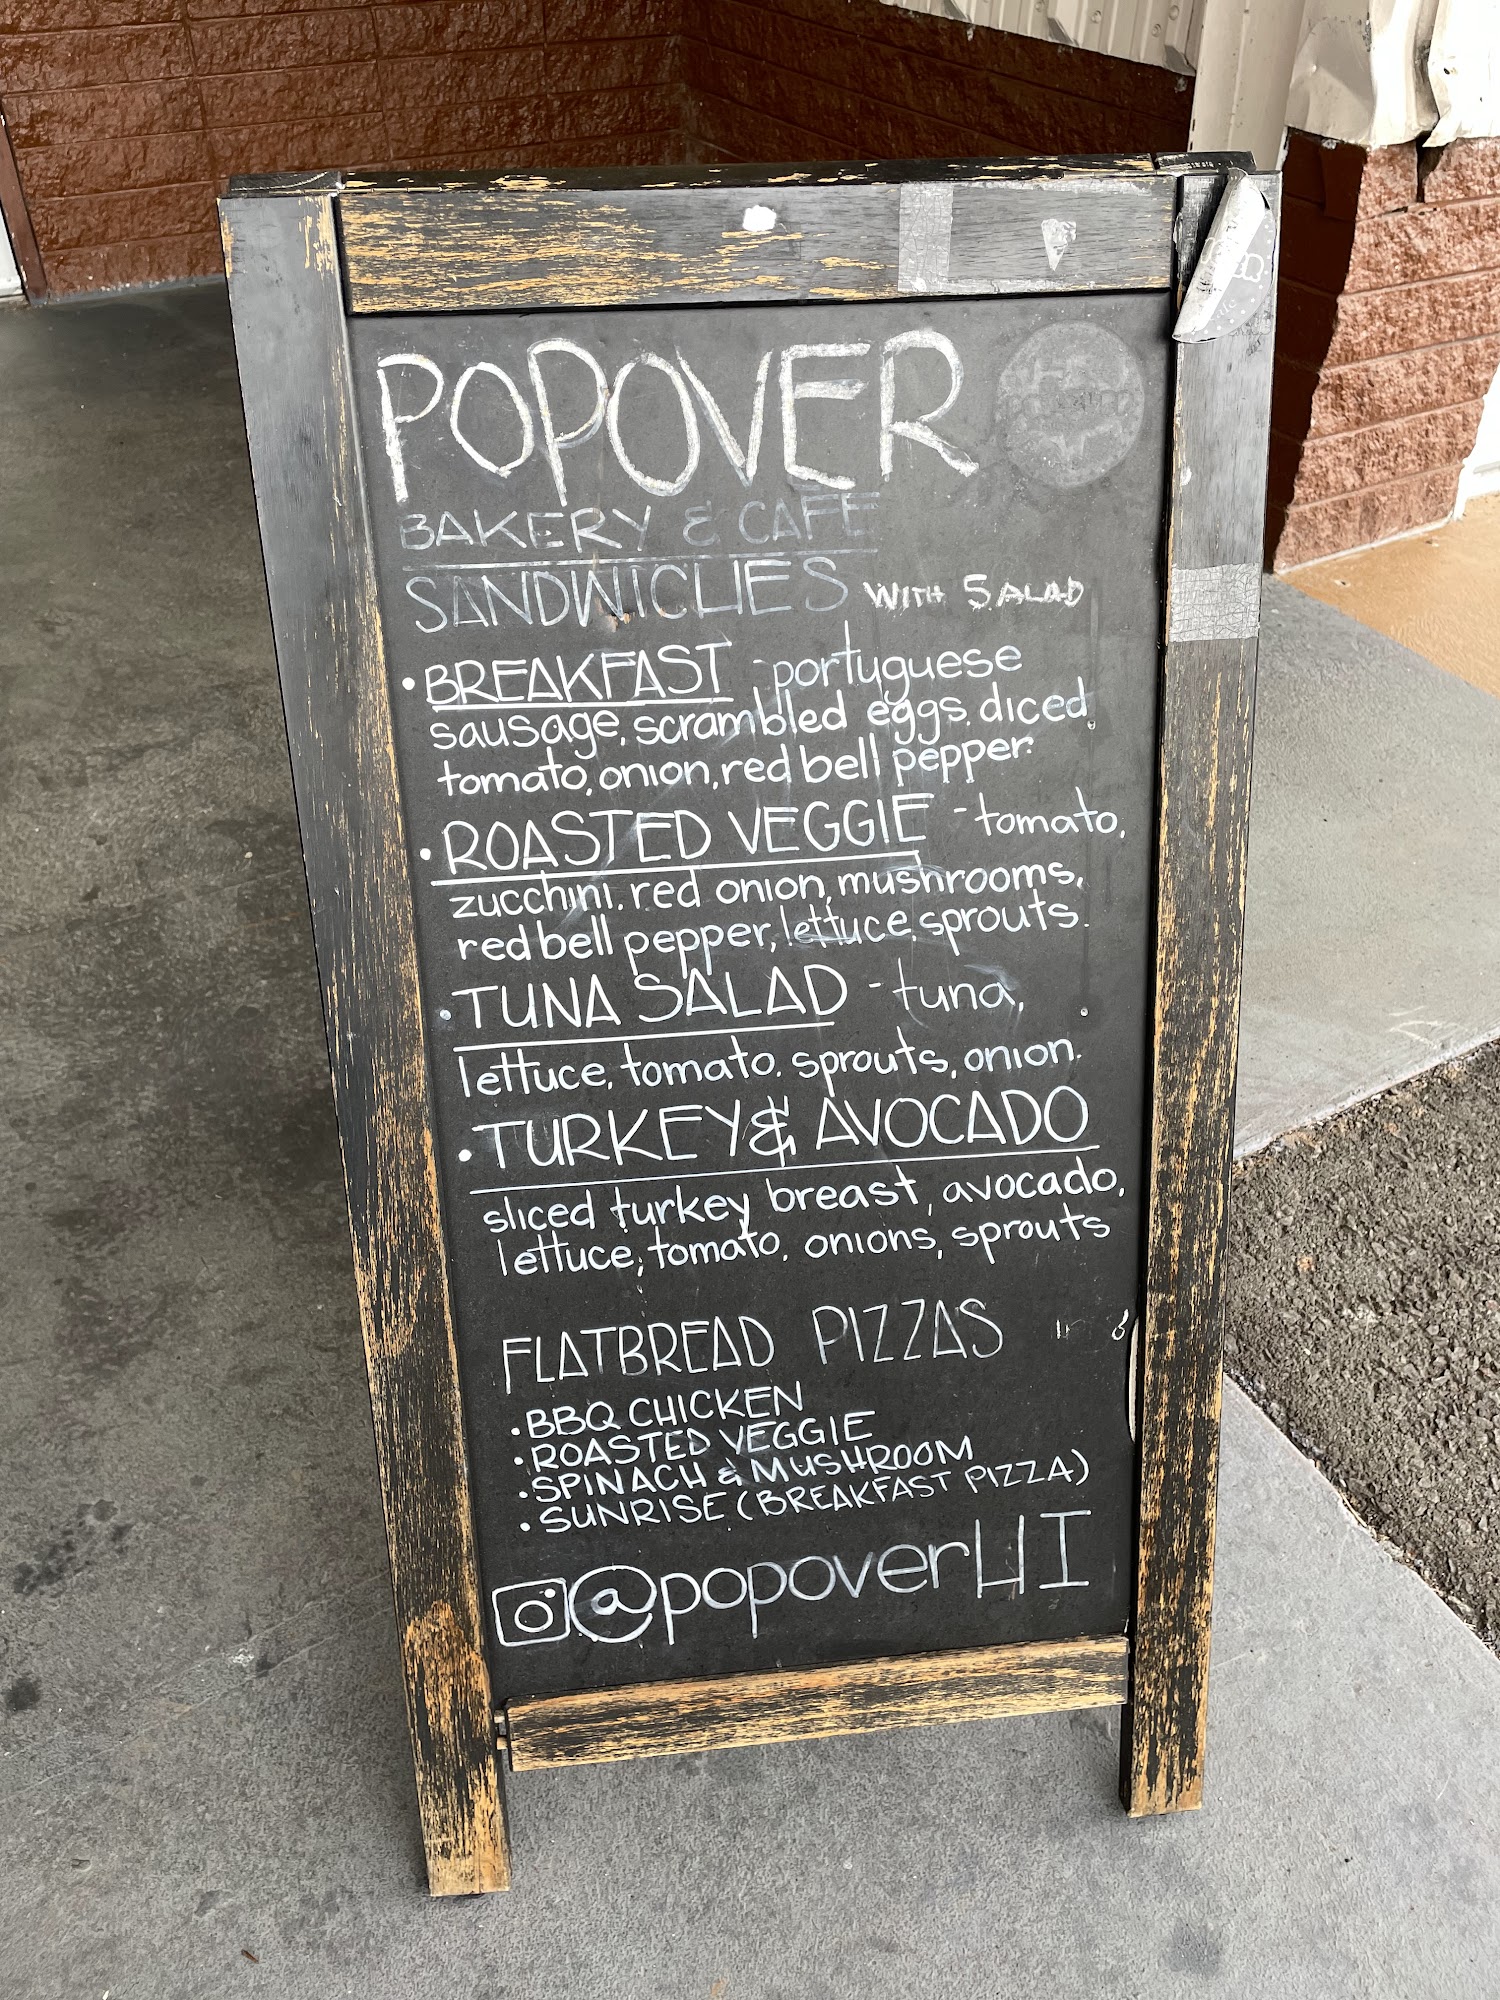 POPOVER
BAKERY & CAFE
SANDWICHES WITH SALAD
• BREAKFAST - portuguese
sausage, scrambled eggs, diced
tomato, onion, red bell pepper.
• ROASTED VEGGIE - tomato,
zucchini, red onion, mushrooms,
red bell pepper, lettuce, sprouts.
• TUNA SALAD - tuna,
lettuce, tomato, sprouts, onion.
• TURKEY & AVOCADO
sliced turkey breast, avocado,
lettuce, tomato, onions, sprouts
FLATBREAD PIZZAS
• BBQ CHICKEN
• ROASTED VEGGIE
• SPINACH & MUSHROOM
• SUNRISE (BREAKFAST PIZZA)
@popoverHI